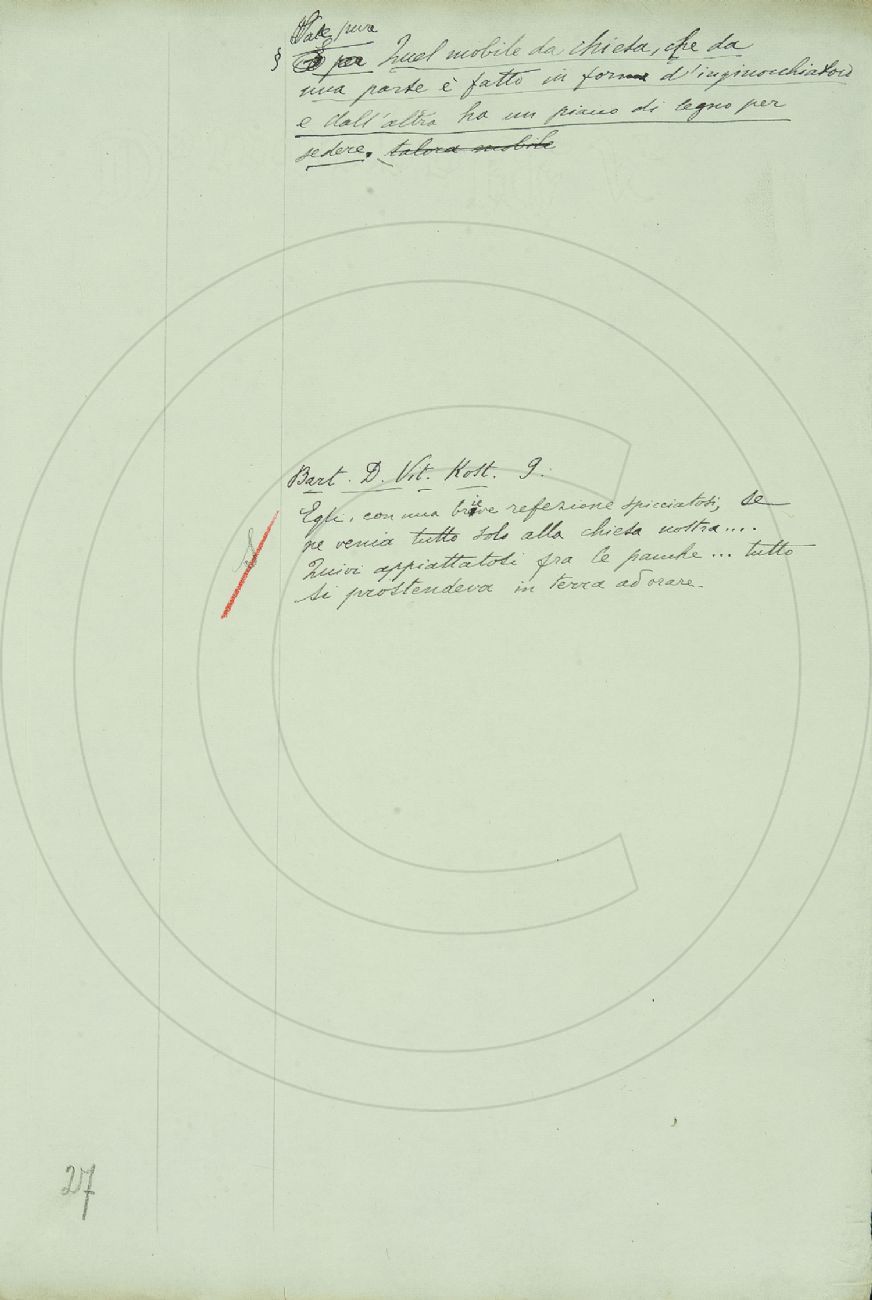 Vale pure
§ E per Quel mobile da chiesa, che da
una parte è fatto in forma d'inginocchiatoio
e dall'altra ha un piano di legno per
sedere. talora mobile
Bart. D. Vit. Kost. 9.
Egli, con una brieve refezione spicciatosi, se
ne venia tutto solo alla chiesa nostra....
Quivi appiattatosi fra le panche ... tutto
si prostendeva in terra ad orare.
27